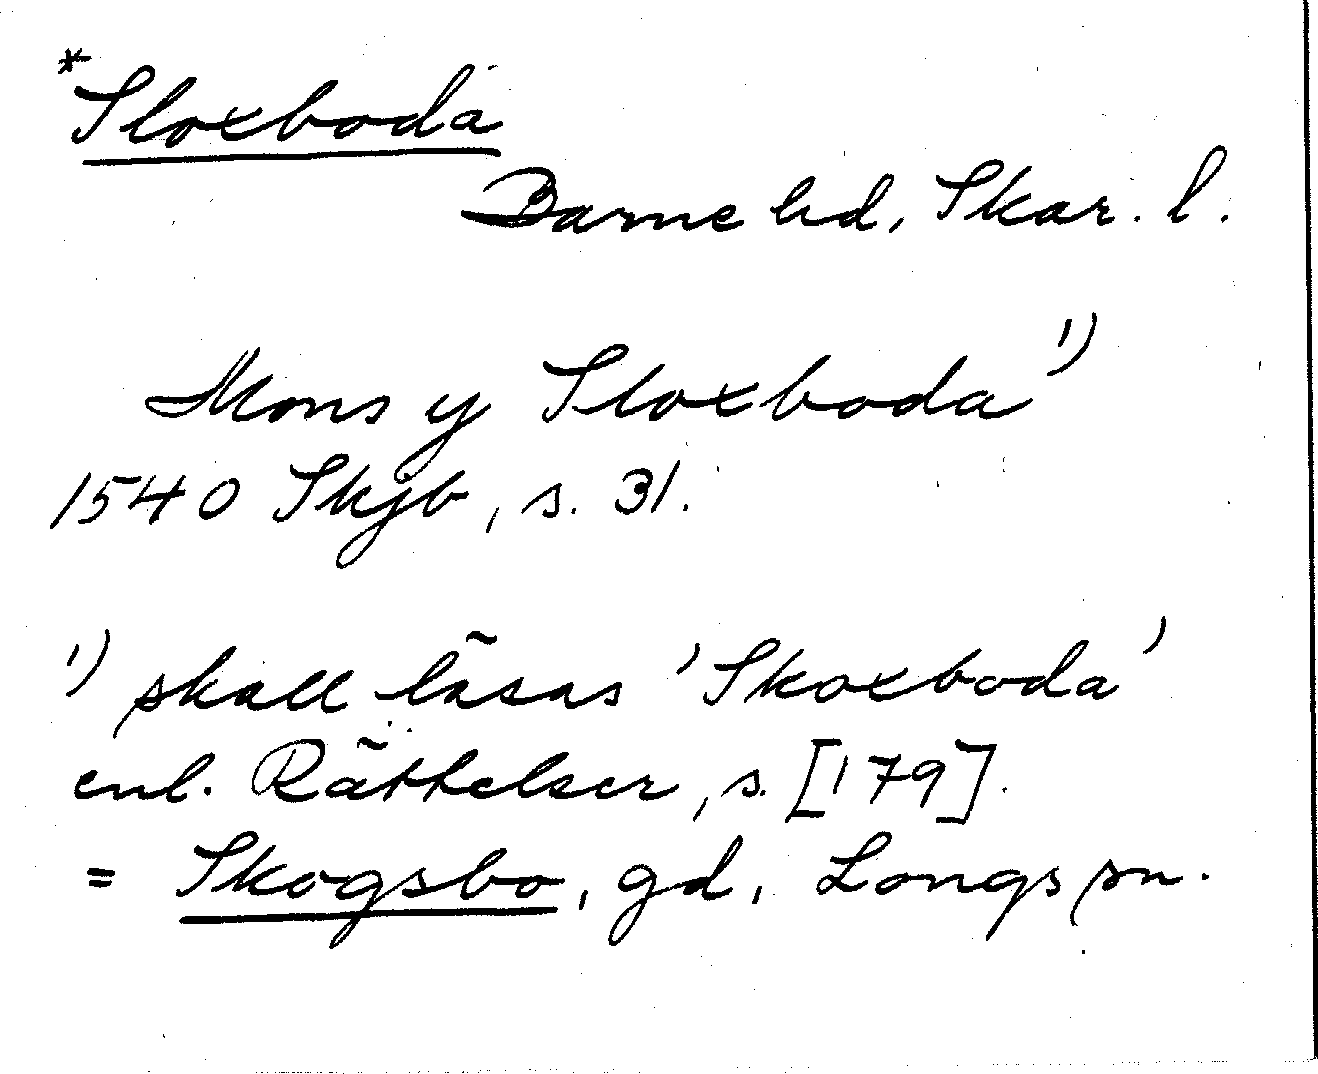 *Sloxboda
Barne hd, Skar. l.
Mons y Sloxboda 1)
1540 Skjb, s. 31.
1) skall läsas 'Skoxboda'
enl. Rättelser, s. [179].
= Skogsbo, gd, Longs sn.